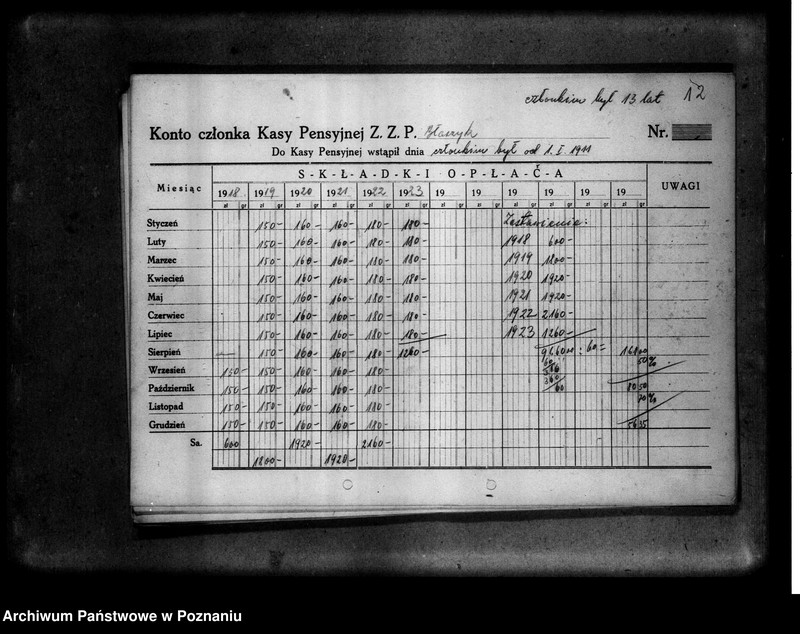 członkiem był 13 lat 12
Konto członka Kasy Pensyjnej Z. Z. P. Błaszyk Nr.
Do Kasy Pensyjnej wstąpił dnia członkiem był od 1. I. 1911
Miesiąc S-K-Ł-A-D-K-I O-P-Ł-A-C-A UWAGI
1918 1919 1920 1921 1922 1923 19 19 19 19 19 19
zł gr zł gr zł gr zł gr zł gr zł gr zł gr zł gr zł gr zł gr zł gr zł gr
Styczeń 150- 160- 160- 180- 180- Zestawienie:
Luty 150- 160- 160- 180- 180- 1918 600-
Marzec 150- 160- 160- 180- 180- 1919 1800-
Kwiecień 150- 160- 160- 180- 180- 1920 1920-
Maj 150- 160- 160- 180- 180- 1921 1920-
Czerwiec 150- 160- 160- 180- 180- 1922 2160-
Lipiec 150- 160- 160- 180- 180- 1923 1260-
Sierpień 150- 160- 160- 180- 1260- 9660 00 : 60 = 161 00
Wrzesień 150- 150- 160- 160- 180- 50%
Październik 150- 150- 160- 160- 180- 80 50
Listopad 150- 150- 160- 160- 180- 70%
Grudzień 150- 150- 160- 160- 180- 56 35
Sa. 600 1920- 2160-
1800- 1920-
Archiwum Państwowe w Poznaniu